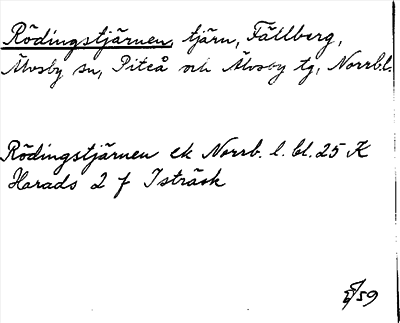 Rödingstjärnen, tjärn, Fällberg,
Älvsby sn, Piteå och Älvsby tg, Norrb.l.
Rödingstjärnen ek Norrb. l. bl. 25 K
Harads 2 f Isträsk
/59